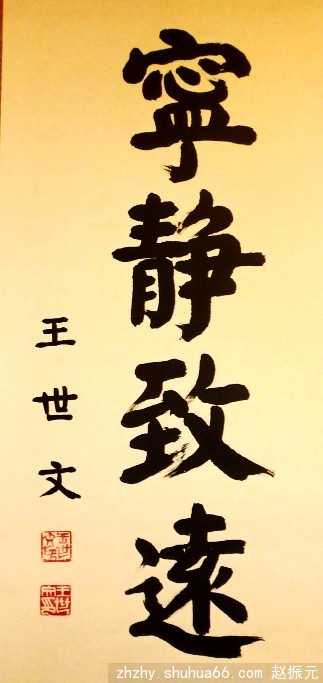 寧静致遠
王世文
zhzhy.shuhua66.com 赵振元